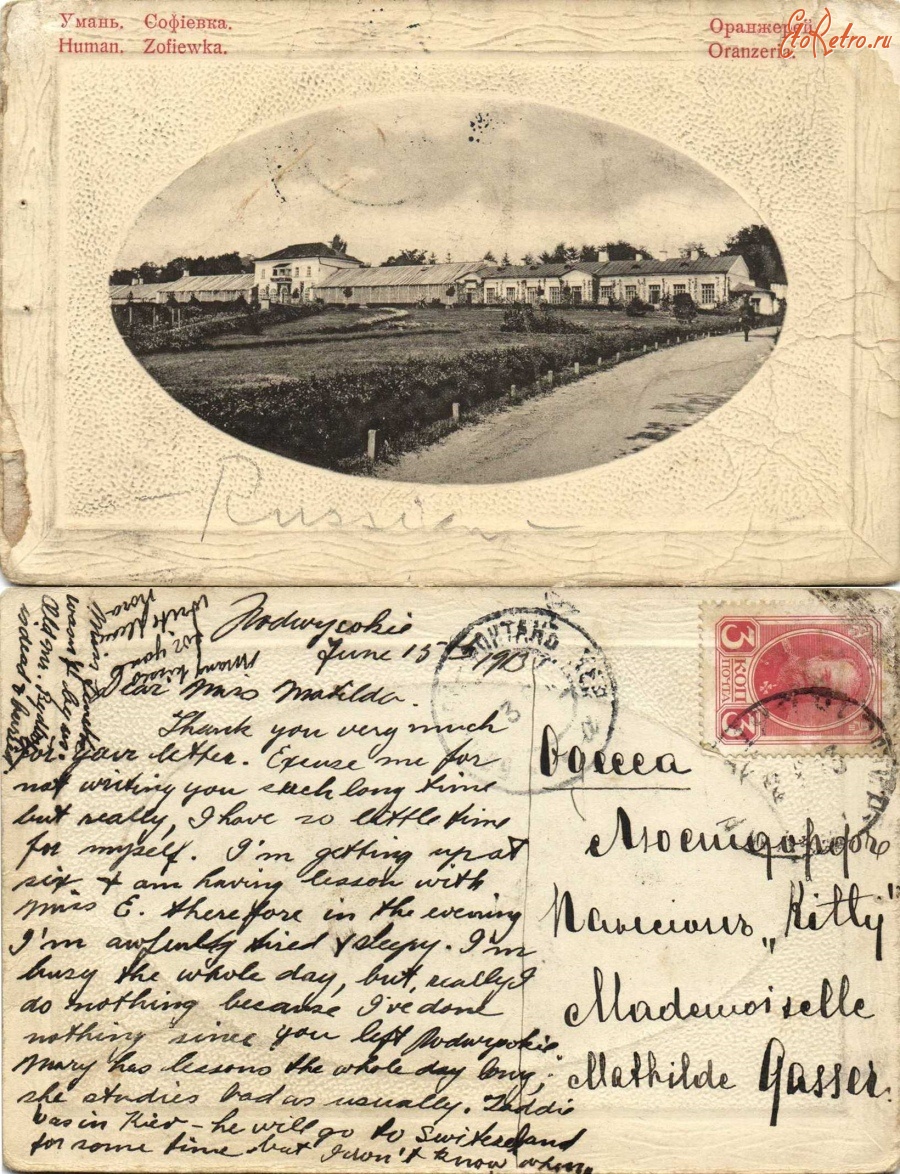 Умань. Софіевка.
Human. Zofiewka.
Оранжерей
Oranzeria.
EtoRetro.ru
Russian
Podwysokie
June 15th 1913
Dear Miss Matilda.
Thank you very much
for your letter. Excuse me for
not writing you such long time
but really, I have so little time
for myself. I'm getting up at
six & am having lesson with
Miss E. therefore in the evening
I'm awfully tired & sleepy. I'm
busy the whole day, but, really I
do nothing because I've done
nothing since you left Podwysokie
Mary has lessons the whole day long;
she studies bad as usually. Taddie
was in Kiev – he will go to Switzerland
for some time but I don't know when.
many kisses
for you
Nora
3
КОП
ПОЧТ.
3
Одесса
Люстдорфъ
Пансионъ „Kitty"
Mademoiselle
Mathilde Gasser.